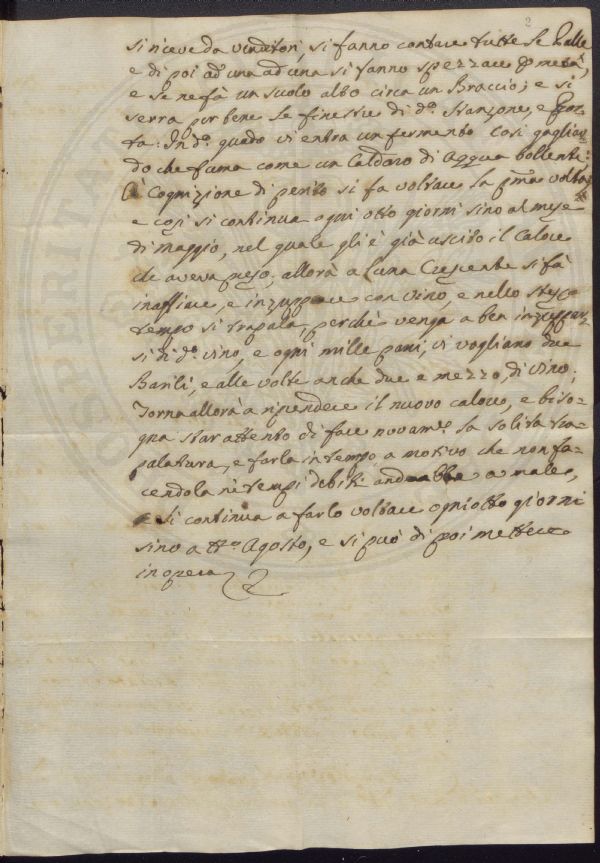 2
si riceve da venditori, si fanno contare tutte le Palle
e di poi ad' una ad una si fanno spezzare p metà,
e se ne fà un suolo alto circa un Braccio; e si
serra per bene le finestre di do. stanzone, e por-
ta: In do. guado vi entra un fermento cosi gagliar-
do che fuma come un Caldaro di Acqua bollente:
A' Cognizione di perito si fa voltare la pma volta
e cosi si continua ogni otto giorni sino al mese
di Maggio, nel quale gli è già uscito il Calore
che aveva preso; allorà a Luna Crescente si fà
inaffiare, e inzuppare con vino, e nello stesso
tempo si trapala, perchè venga a ben inzuppar-
si di do. vino, e ogni mille pani, vi vogliano due
Barili, e alle volte anche due e mezzo, di vino;
Torna allorà a riprendere il nuovo calore, e biso-
gna star attento di fare novame. la solita tra-
palatura, e farla in tempo, a motivo che non fa-
cendola nè tempi debiti andrebbe a male,
e si continua a farlo voltare ogni otto giorni
sino a tto. Agosto, e si può di poi mettere
in opera